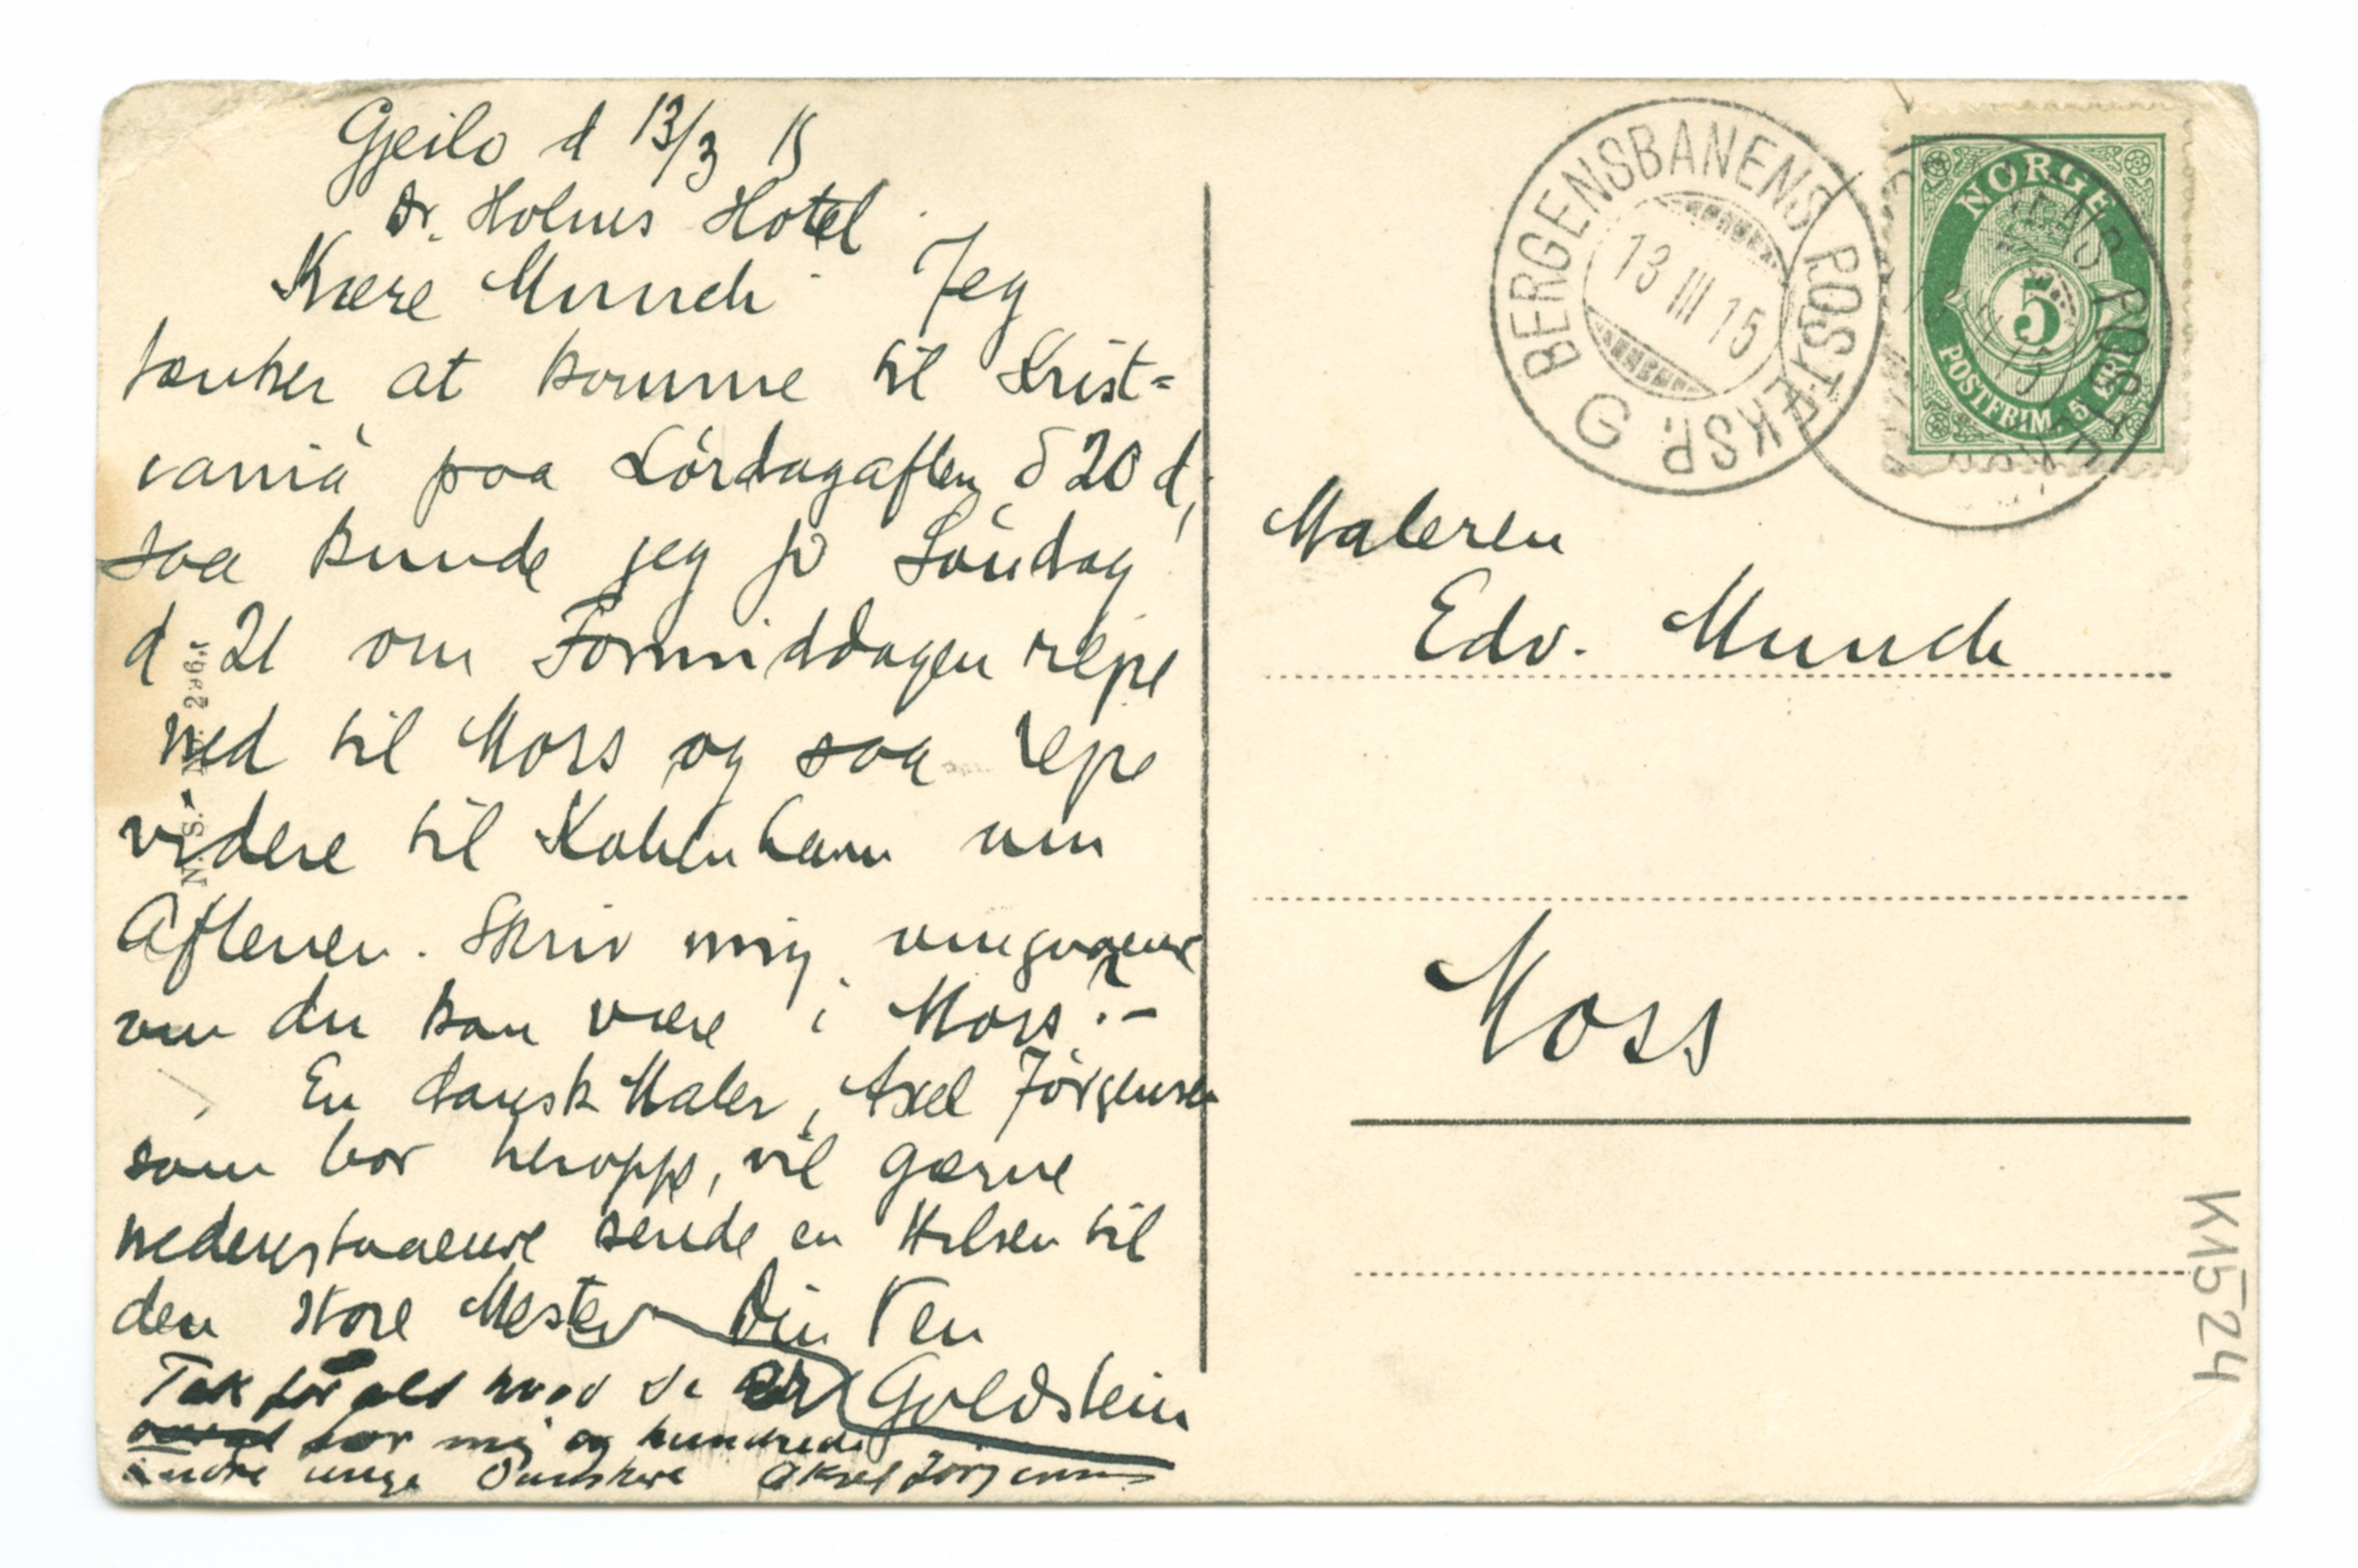 Gjeilo d 13/3 15
Dr. Holms Hotel
Kære Munch Jeg
tænker at komme til Krist=
iania paa Lördagaften d 20 d,
saa kunde jeg jo Söndag
d 21 om Formiddagen rejse
ned til Moss og saa rejse
videre til København om
Aftenen. Skriv mig omgaaende
om du kan være i Moss? –
En dansk Maler, Axel Jörgensen
som bor heroppe, vil gærne
nedenstaaende sende en Hilsen til
den store Mester Din Ven
Goldstein
Tak for alt hvad De er
for mig og hundrede
andre unge Danskere Aksel Jörgensen
N. S. 296
BERGENSBANENS POSTEKSP. G
13 III 15
NORGE
5
POSTFRIM. 5 ØRE
Maleren
Edv. Munch
Moss
K1524